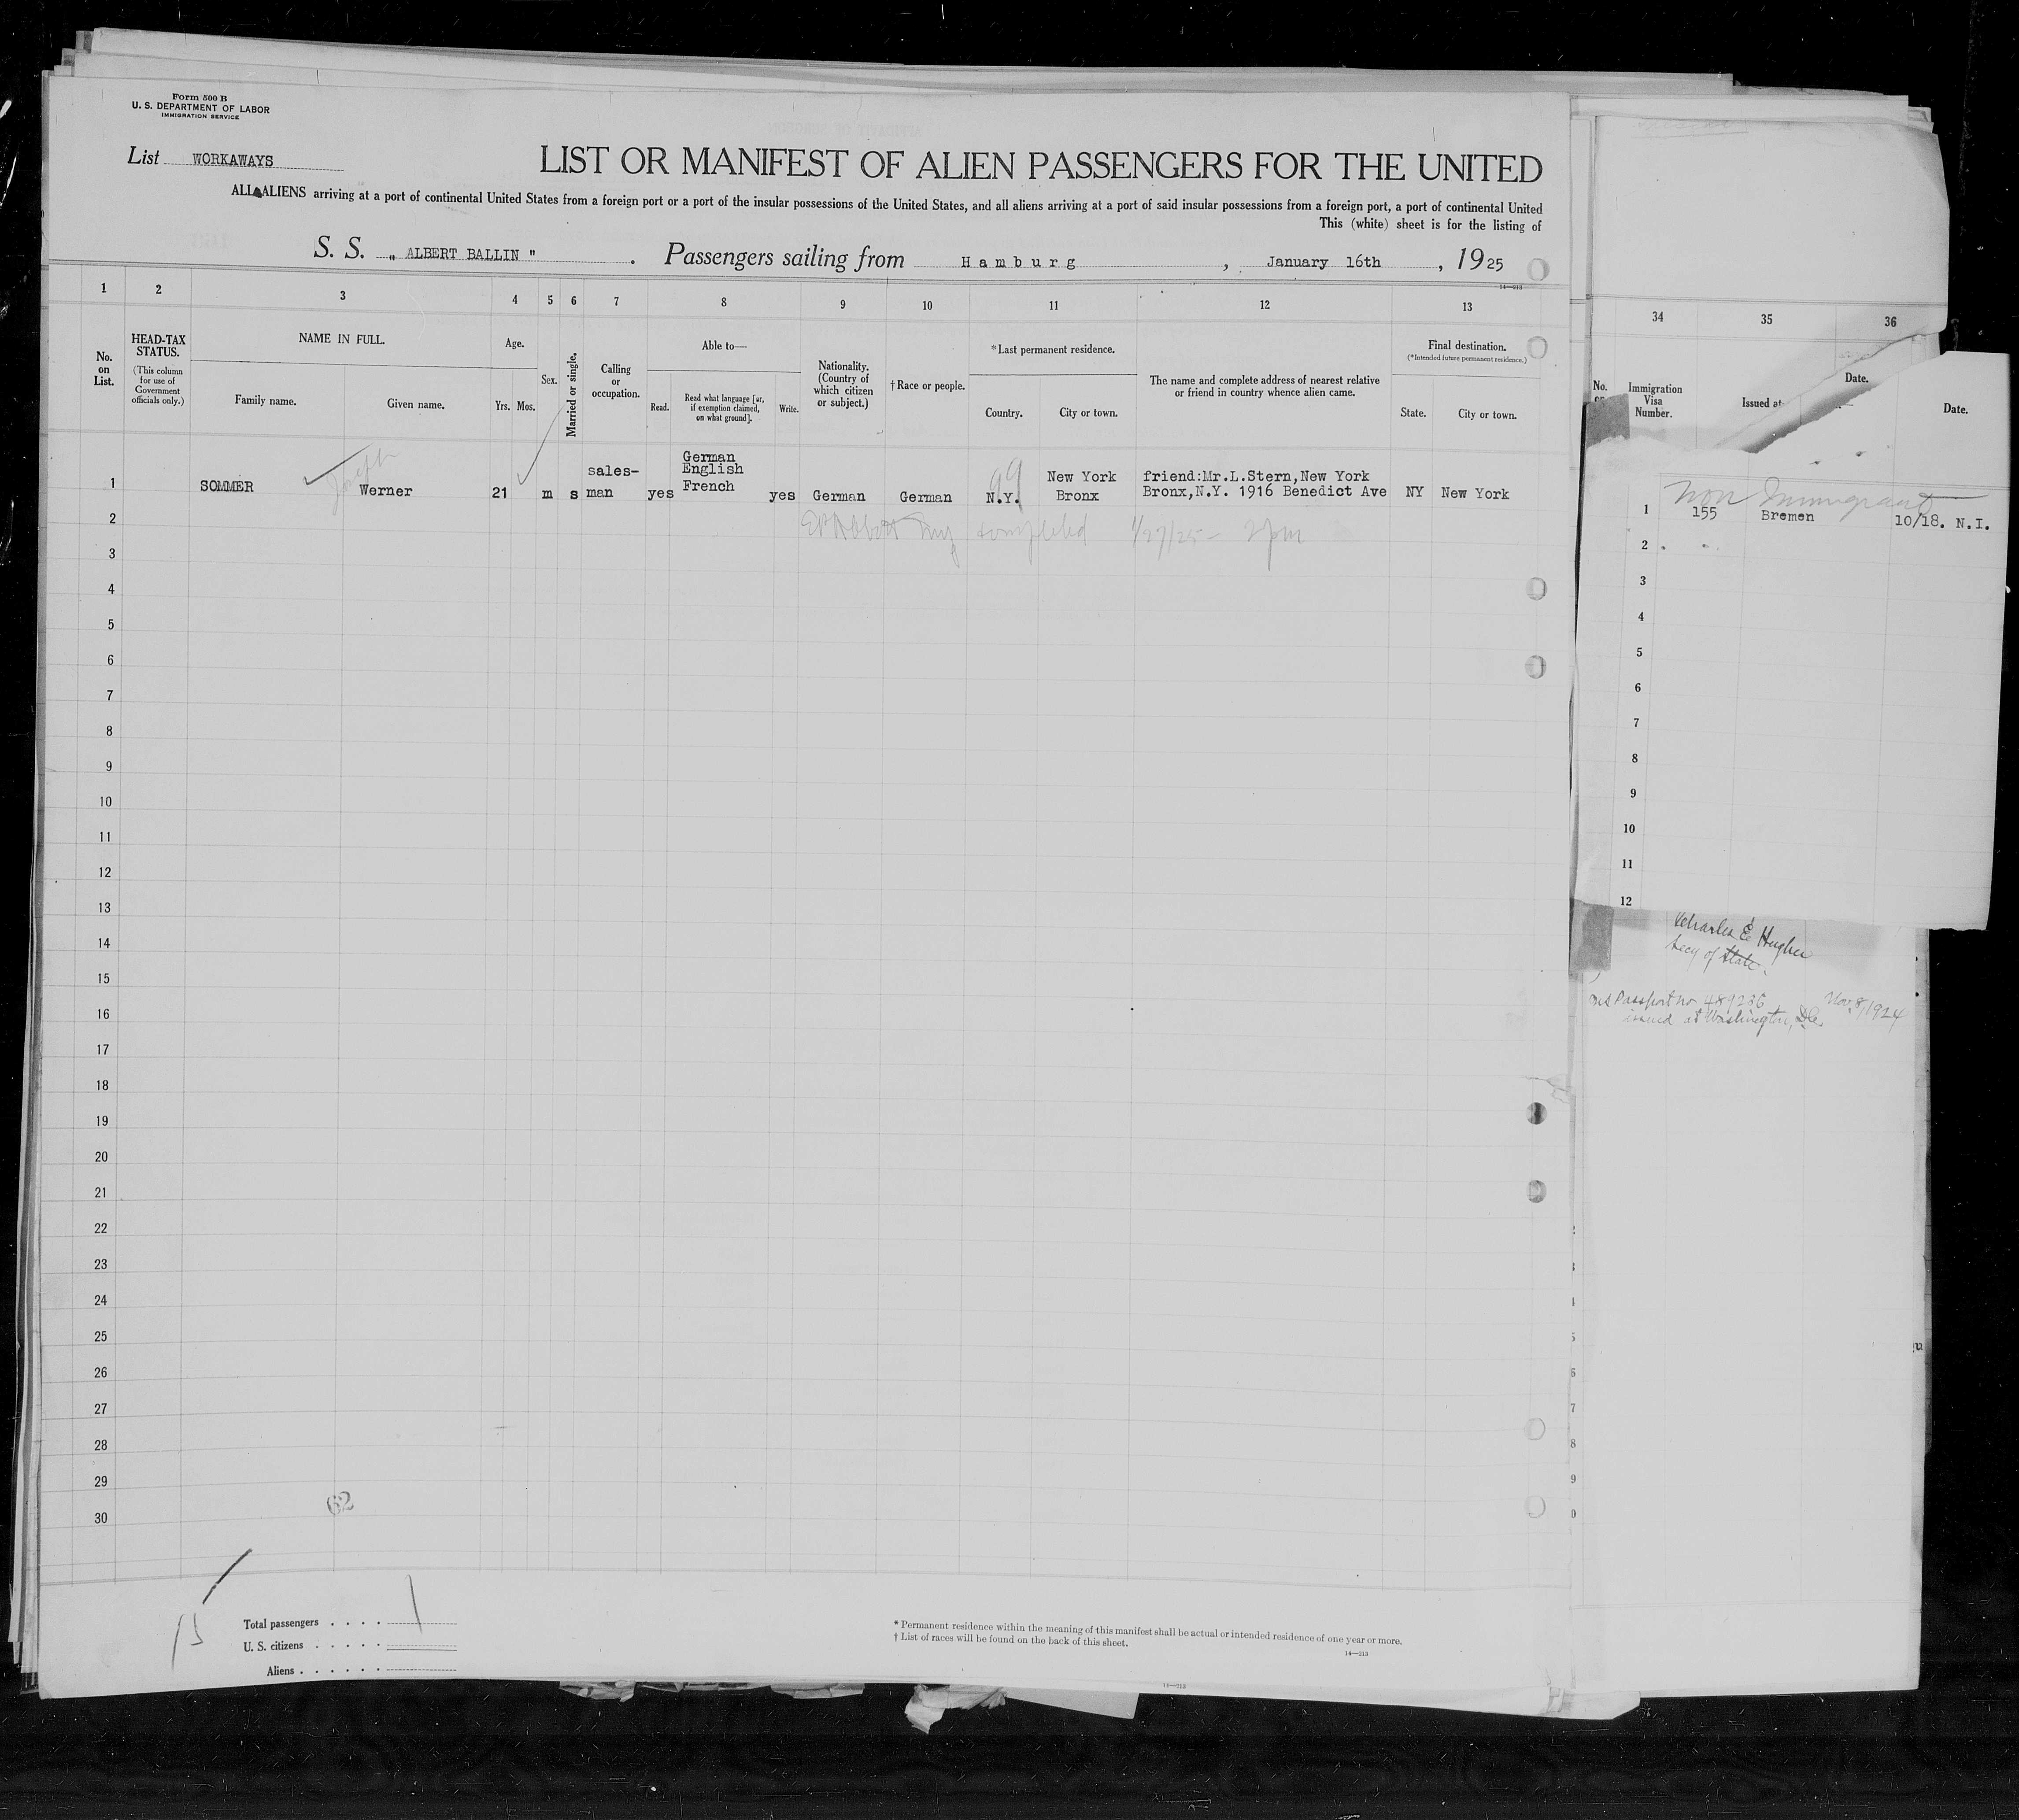 Form 500 B
U. S. DEPARTMENT OF LABOR
IMMIGRATION SERVICE
List WORKAWAYS
LIST OR MANIFEST OF ALIEN PASSENGERS FOR THE UNITED
ALL ALIENS arriving at a port of continental United States from a foreign port or a port of the insular possessions of the United States, and all aliens arriving at a port of said insular possessions from a foreign port, a port of continental United
This (white) sheet is for the listing of
S. S. „ ALBERT BALLIN " . Passengers sailing from Hamburg , January 16th , 1925
14—213
1 2 3 4 5 6 7 8 9 10 11 12 13
No. on List.
HEAD-TAX STATUS.
(This column for use of Government officials only.)
NAME IN FULL.
Family name. Given name.
Age.
Yrs. Mos.
Sex.
Married or single.
Calling or occupation.
Able to—
Read. Read what language [or, if exemption claimed, on what ground]. Write.
Nationality. (Country of which citizen or subject.)
† Race or people.
*Last permanent residence.
Country. City or town.
The name and complete address of nearest relative or friend in country whence alien came.
Final destination.
(*Intended future permanent residence.)
State. City or town.
1 SOMMER Werner 21 m s sales-man yes German English French yes German German N.Y. New York Bronx friend:Mr.L.Stern,New York Bronx,N.Y. 1916 Benedict Ave NY New York
99
2 completed 1/27/25 - 2pm
3
4
5
6
7
8
9
10
11
12
13
14
15
16
17
18
19
20
21
22
23
24
25
26
27
28
29
30
62
Total passengers . . . . 1
U. S. citizens . . . . .
Aliens . . . . . .
* Permanent residence within the meaning of this manifest shall be actual or intended residence of one year or more.
† List of races will be found on the back of this sheet.
14—213
14—213
34 35 36
No.
Immigration Visa Number.
Issued at-
Date.
Date.
Non Immigrant
1 155 Bremen 10/18. N.I.
2
3
4
5
6
7
8
9
10
11
12
Charles E. Hughes
Secy of State.
Passport no 489236 Nov. 8, 1924
issued at Washington, D.C.